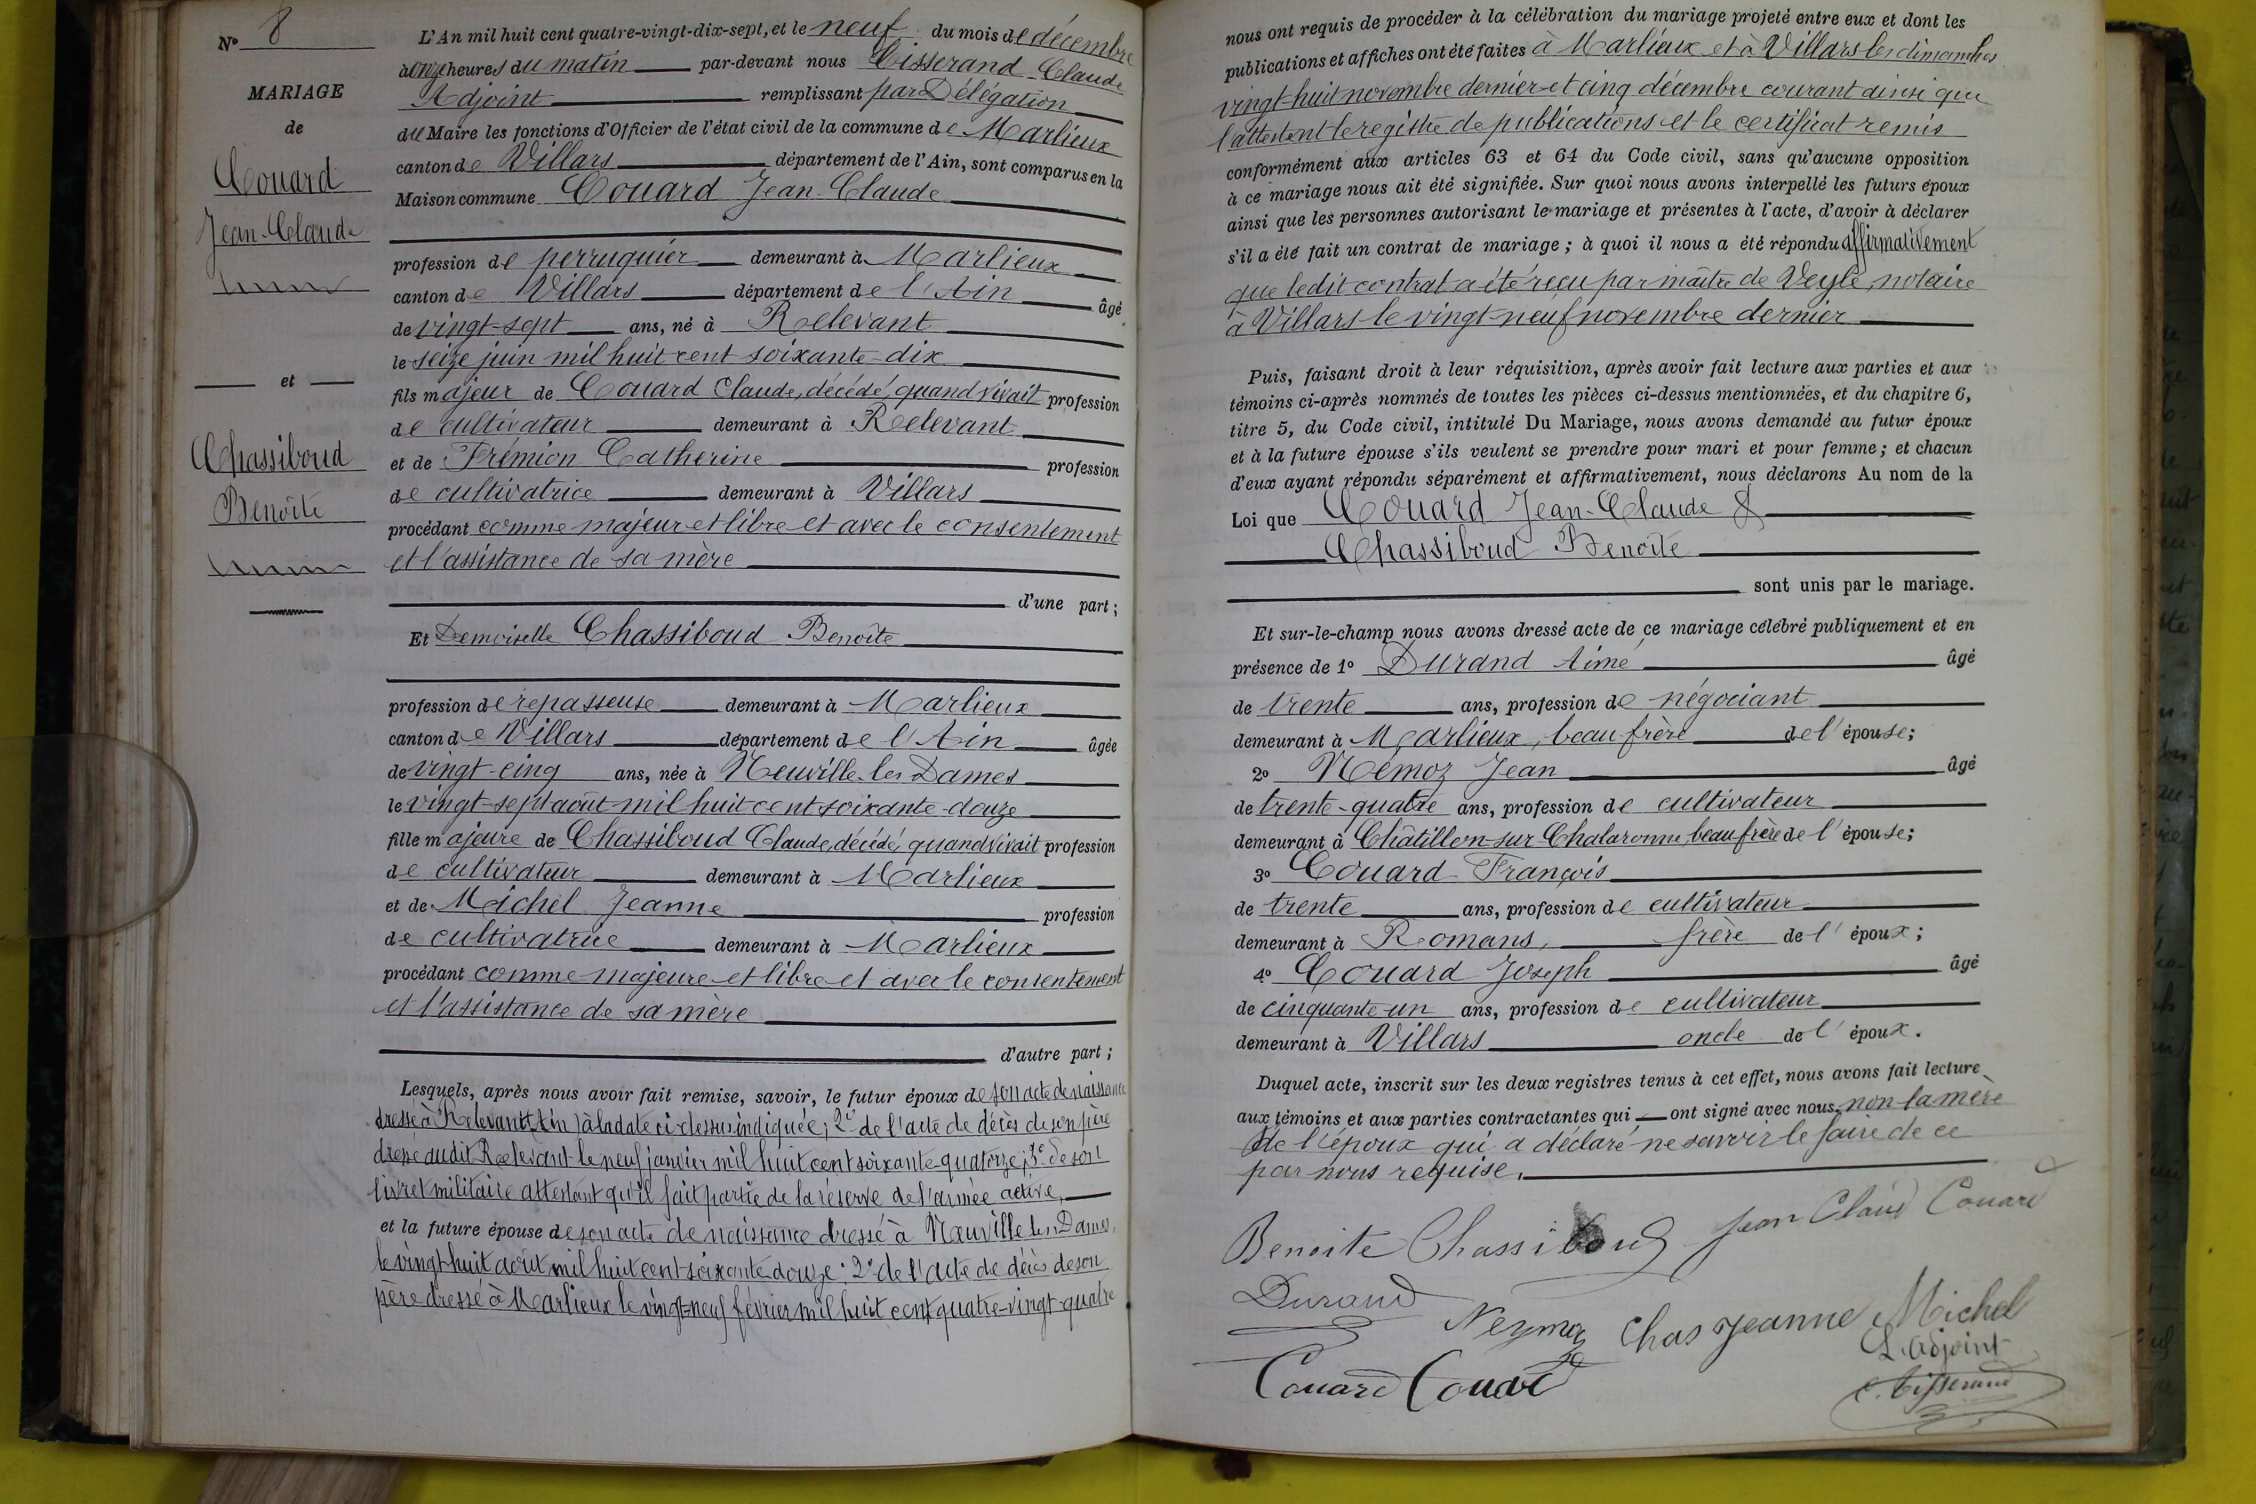 N° 8
MARIAGE
de
Couard
Jean-Claude
et
Chassiboud
Benoîte
L'An mil huit cent quatre-vingt-dix-sept, et le neuf du mois de décembre
à onze heures du matin par-devant nous Tisserand Claude
Adjoint remplissant par Délégation
du Maire les fonctions d'Officier de l'état civil de la commune de Marlieux
canton de Villars département de l'Ain, sont comparus en la
Maison commune Couard Jean-Claude
profession de perruquier demeurant à Marlieux
canton de Villars département de l'Ain âgé
de vingt-sept ans, né à Relevant
le seize juin mil huit cent soixante-dix
fils majeur de Couard Claude, décédé, quand vivait profession
de cultivateur demeurant à Relevant
et de Frémion Catherine profession
de cultivatrice demeurant à Villars
procédant comme majeur et libre et avec le consentement
et l'assistance de sa mère
d'une part ;
Et Demoiselle Chassiboud Benoîte
profession de repasseuse demeurant à Marlieux
canton de Villars département de l'Ain âgée
de vingt-cinq ans, née à Neuville-les-Dames
le vingt-sept août mil huit cent soixante-douze
fille majeure de Chassiboud Claude, décédé, quand vivait profession
de cultivateur demeurant à Marlieux
et de Michel Jeanne profession
de cultivatrice demeurant à Marlieux
procédant comme majeure et libre et avec le consentement
et l'assistance de sa mère
d'autre part ;
Lesquels, après nous avoir fait remise, savoir, le futur époux de son acte de naissance
dressé à Relevant (Ain) à la date ci-dessus indiquée ; 2° de l'acte de décès de son père
dressé audit Relevant le neuf janvier mil huit cent soixante-quatorze ; 3° de son
livret militaire attestant qu'il fait partie de la réserve de l'armée active,
et la future épouse de son acte de naissance dressé à Neuville les Dames,
le vingt-huit août mil huit cent soixante douze ; 2° de l'acte de décès de son
père dressé à Marlieux le vingt-neuf février mil huit cent quatre-vingt-quatre
nous ont requis de procéder à la célébration du mariage projeté entre eux et dont les
publications et affiches ont été faites à Marlieux et à Villars les dimanches
vingt-huit novembre dernier et cinq décembre courant ainsi que
l'attestent le registre de publications et le certificat remis
conformément aux articles 63 et 64 du Code civil, sans qu'aucune opposition
à ce mariage nous ait été signifiée. Sur quoi nous avons interpellé les futurs époux
ainsi que les personnes autorisant le mariage et présentes à l'acte, d'avoir à déclarer
s'il a été fait un contrat de mariage ; à quoi il nous a été répondu affirmativement
que ledit contrat a été reçu par maître de Veyle, notaire
à Villars le vingt-neuf novembre dernier
Puis, faisant droit à leur réquisition, après avoir fait lecture aux parties et aux
témoins ci-après nommés de toutes les pièces ci-dessus mentionnées, et du chapitre 6,
titre 5, du Code civil, intitulé Du Mariage, nous avons demandé au futur époux
et à la future épouse s'ils veulent se prendre pour mari et pour femme ; et chacun
d'eux ayant répondu séparément et affirmativement, nous déclarons Au nom de la
Loi que Couard Jean-Claude &
Chassiboud Benoîte
sont unis par le mariage.
Et sur-le-champ nous avons dressé acte de ce mariage célébré publiquement et en
présence de 1° Durand Aimé âgé
de trente ans, profession de négociant
demeurant à Marlieux, beau frère de l'épouse ;
2° Némoz Jean âgé
de trente-quatre ans, profession de cultivateur
demeurant à Châtillon-sur-Chalaronne, beau frère de l'épouse ;
3° Couard François
de trente ans, profession de cultivateur
demeurant à Romans, frère de l'époux ;
4° Couard Joseph âgé
de cinquante-un ans, profession de cultivateur
demeurant à Villars oncle de l'époux.
Duquel acte, inscrit sur les deux registres tenus à cet effet, nous avons fait lecture
aux témoins et aux parties contractantes qui ont signé avec nous, non la mère
de l'époux qui a déclaré ne savoir le faire de ce
par nous requise.
Benoite Chassiboud Jean Claud Couard
Durand Neymoz Chas Jeanne Michel
Couard Couard L'adjoint
C. Tisserand